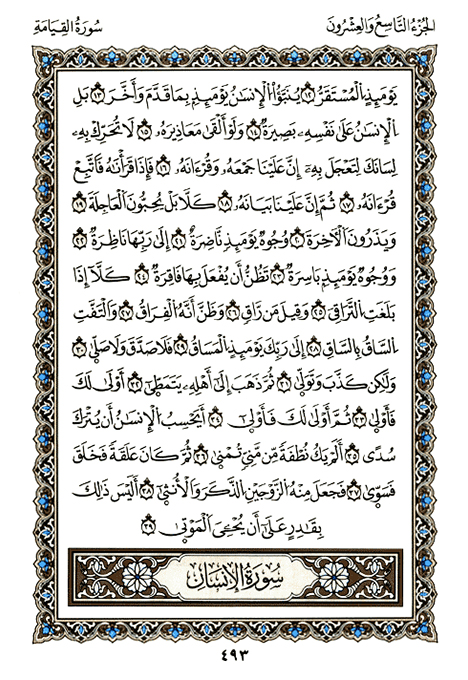 الجُزْءُ التَّاسِعُ وَالْعِشْرُونَ
سُورَةُ القِيَامَةِ
يَوْمَئِذٍ الْمُسْتَقَرُّ ١٢ يُنَبَّؤُا الْإِنسَانُ يَوْمَئِذٍ بِمَا قَدَّمَ وَأَخَّرَ ١٣ بَلِ
الْإِنسَانُ عَلَىٰ نَفْسِهِۦ بَصِيرَةٌ ١٤ وَلَوْ أَلْقَىٰ مَعَاذِيرَهُۥ ١٥ لَا تُحَرِّكْ بِهِۦ
لِسَانَكَ لِتَعْجَلَ بِهِۦٓ إِنَّ عَلَيْنَا جَمْعَهُۥ وَقُرْءَانَهُۥ ١٦ فَإِذَا قَرَأْنَٰهُ فَاتَّبِعْ
قُرْءَانَهُۥ ١٧ ثُمَّ إِنَّ عَلَيْنَا بَيَانَهُۥ ١٨ كَلَّا بَلْ يُحِبُّونَ الْعَاجِلَةَ ١٩
وَيَذَرُونَ الْآخِرَةَ ٢٠ وُجُوهٌ يَوْمَئِذٍ نَّاضِرَةٌ ٢١ إِلَىٰ رَبِّهَا نَاظِرَةٌ ٢٢
وَوُجُوهٌ يَوْمَئِذٍ بَاسِرَةٌ ٢٣ تَظُنُّ أَن يُفْعَلَ بِهَا فَاقِرَةٌ ٢٤ كَلَّا إِذَا
بَلَغَتِ التَّرَاقِيَ ٢٥ وَقِيلَ مَن رَّاقٍ ٢٦ وَظَنَّ أَنَّهُ الْفِرَاقُ ٢٧ وَالْتَفَّتِ
السَّاقُ بِالسَّاقِ ٢٨ إِلَىٰ رَبِّكَ يَوْمَئِذٍ الْمَسَاقُ ٢٩ فَلَا صَدَّقَ وَلَا صَلَّىٰ ٣٠
وَلَٰكِن كَذَّبَ وَتَوَلَّىٰ ٣١ ثُمَّ ذَهَبَ إِلَىٰ أَهْلِهِۦ يَتَمَطَّىٰ ٣٢ أَوْلَىٰ لَكَ
فَأَوْلَىٰ ٣٣ ثُمَّ أَوْلَىٰ لَكَ فَأَوْلَىٰ ٣٤ أَيَحْسِبُ الْإِنسَانُ أَن يُتْرَكَ
سُدًى ٣٥ أَلَمْ يَكُ نُطْفَةً مِّن مَّنِيٍّ تُمْنَىٰ ٣٦ ثُمَّ كَانَ عَلَقَةً فَخَلَقَ
فَسَوَّىٰ ٣٧ فَجَعَلَ مِنْهُ الزَّوْجَيْنِ الذَّكَرَ وَالْأُنثَىٰ ٣٨ أَلَيْسَ ذَٰلِكَ
بِقَادِرٍ عَلَىٰ أَن يُحْـِۧيَ الْمَوْتَىٰ ٣٩
سُورَةُ الْإِنسَانِ
٤٩٣